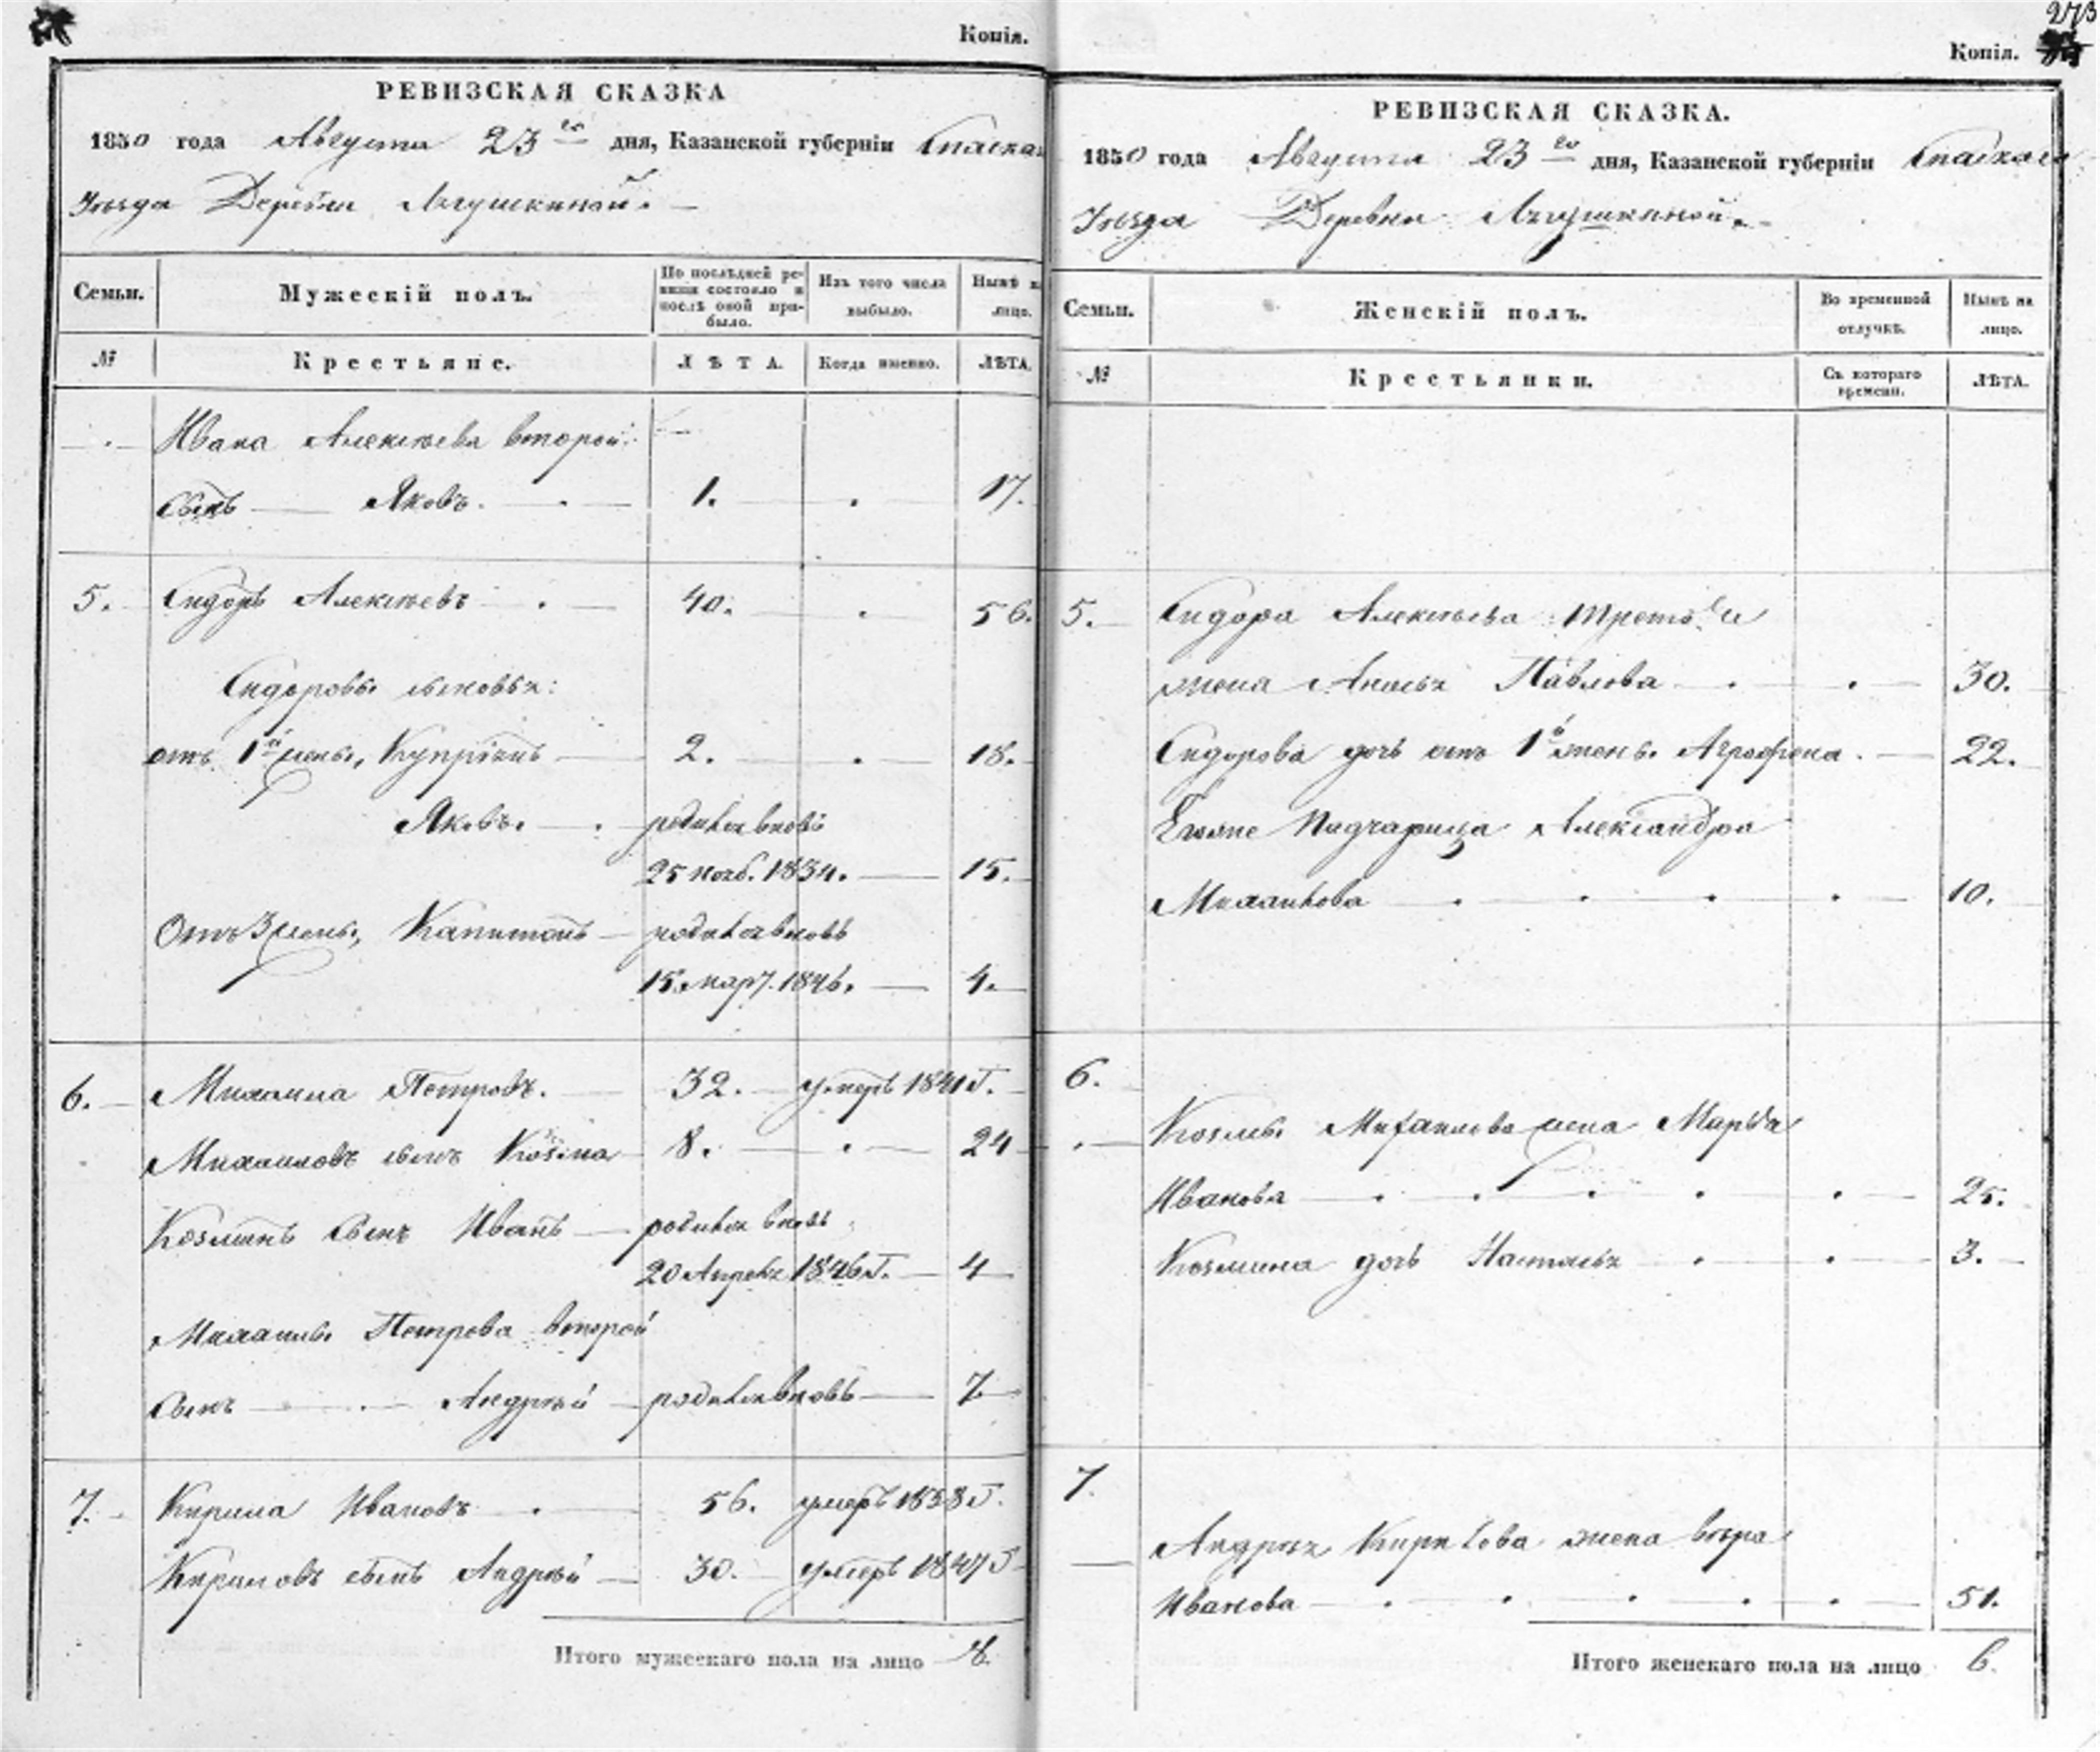 273
Копія.
РЕВИЗСКАЯ СКАЗКА
1850 года Августа 23го дня, Казанской губерніи Спаскаго
Уѣзда Деревни Лягушкиной.
Семьи.
Мужескій полъ.
По послѣдней ревизіи состояло и послѣ оной прибыло.
Изъ того числа выбыло.
Нынѣ на лицо.
№
Крестьяне.
ЛѢТА.
Когда именно.
ЛѢТА.
Ивана Алексѣева второй
сынъ Яковъ. 1. 17.
5. Сидоръ Алексѣевъ 40. 56.
Сидоровы сыновья:
отъ 1й жены, Купріянъ 2. 18.
Яковъ. родился вновь
25 нояб. 1834. 15.
Отъ 3 жены, Капитонъ родился вновь
15 мар. 1846. 4.
6. Михаила Петровъ. 32. умеръ 1841 г.
Михаиловъ сынъ Козма 8. 24
Козминъ сынъ Иванъ родился вновь
20 Апреля 1846 г. 4
Михаилы Петрова второй
сынъ Андрей родился вновь 7
7. Кирила Ивановъ 56. умеръ 1838 г.
Кириловъ сынъ Андрей 30. умеръ 1847 г
Итого мужескаго пола на лицо 8.
Копія.
РЕВИЗСКАЯ СКАЗКА.
1850 года Августа 23го дня, Казанской губерніи Спаскаго
Уѣзда Деревни Лягушкиной.
Семьи.
Женскій полъ.
Во временной отлучкѣ.
Нынѣ на лицо.
№
Крестьянки.
Съ котораго времени.
ЛѢТА.
5. Сидора Алексѣева третьей
жена Павлова 30.
Сидорова дочь отъ 1й жены Аграфена. 22.
Ево же падчарица Александра
Михайлова 10.
6.
Козмы Михайлова жена Марья
Иванова 25.
Козмина дочь Настасья 3.
7.
Андрея Кирилова жена вѣра
Иванова 51.
Итого женскаго пола на лицо 6.